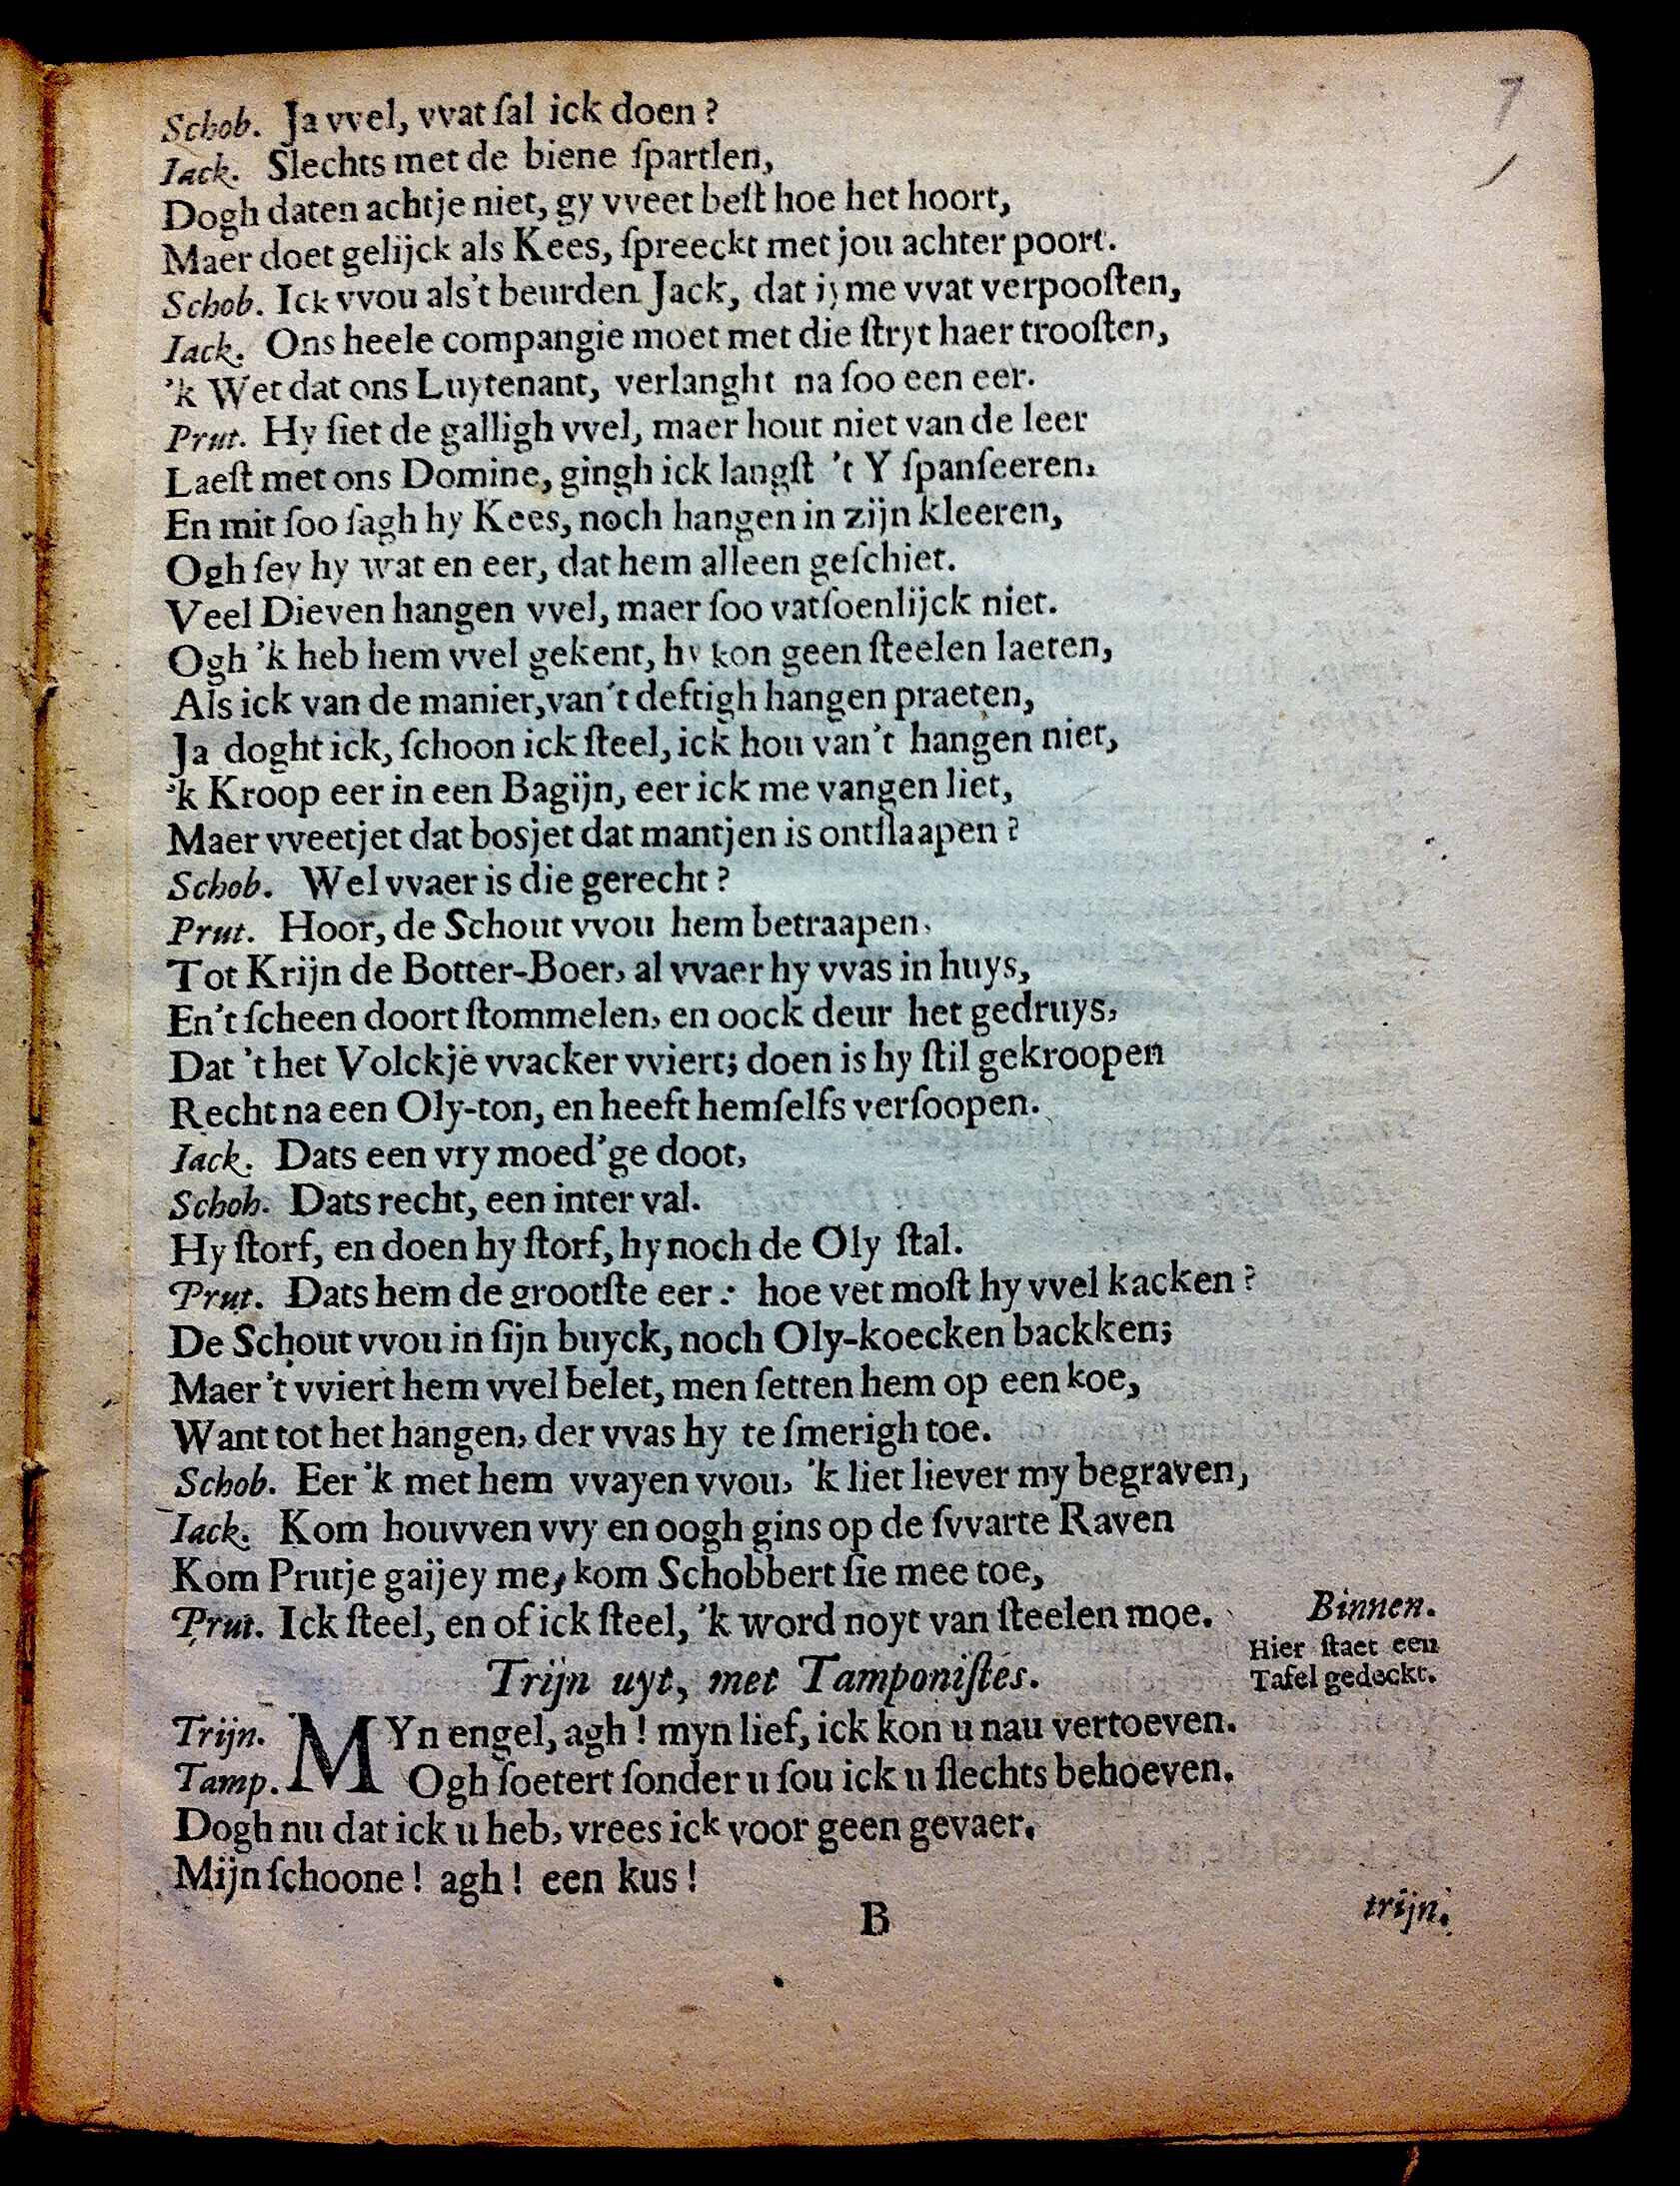 7
Schob. Ja vvel, vvat ſal ick doen ?
Iack. Slechts met de biene ſpartlen,
Dogh daten achtje niet, gy vveet beſt hoe het hoort,
Maer doet gelijck als Kees, ſpreeckt met jou achter poort.
Schob. Ick vvou als't beurden Jack, dat ij me vvat verpooſten,
Iack. Ons heele compangie moet met die ſtryt haer trooſten,
'k Wet dat ons Luytenant, verlanght na ſoo een eer.
Prut. Hy ſiet de galligh vvel, maer hout niet van de leer
Laeſt met ons Domine, gingh ick langſt 't Y ſpanſeeren.
En mit ſoo ſagh hy Kees, noch hangen in zijn kleeren,
Ogh ſey hy wat en eer, dat hem alleen geſchiet.
Veel Dieven hangen vvel, maer ſoo vatſoenlijck niet.
Ogh 'k heb hem vvel gekent, hy kon geen ſteelen laeten,
Als ick van de manier, van't deftigh hangen praeten,
Ja doght ick, ſchoon ick ſteel, ick hou van't hangen niet,
'k Kroop eer in een Bagijn, eer ick me vangen liet,
Maer vveetjet dat bosjet dat mantjen is ontſlaapen ?
Schob. Wel vvaer is die gerecht ?
Prut. Hoor, de Schout vvou hem betraapen,
Tot Krijn de Botter-Boer, al vvaer hy vvas in huys,
En't ſcheen doort ſtommelen, en oock deur het gedruys,
Dat 't het Volckje vvacker vviert; doen is hy ſtil gekroopen
Recht na een Oly-ton, en heeft hemſelfs verſoopen.
Iack. Dats een vry moed'ge doot,
Schob. Dats recht, een inter val.
Hy ſtorf, en doen hy ſtorf, hy noch de Oly ſtal.
Prut. Dats hem de grootſte eer : hoe vet moſt hy vvel kacken ?
De Schout vvou in ſijn buyck, noch Oly-koecken backken;
Maer 't vviert hem vvel belet, men ſetten hem op een koe,
Want tot het hangen, der vvas hy te ſmerigh toe.
Schob. Eer 'k met hem vvayen vvou, 'k liet liever my begraven,
Iack. Kom houvven vvy en oogh gins op de ſvvarte Raven
Kom Prutje gaijey me, kom Schobbert ſie mee toe,
Prut. Ick ſteel, en of ick ſteel, 'k word noyt van ſteelen moe.
Binnen.
Hier ſtaet een
Tafel gedeckt.
Trijn uyt, met Tamponiſtes.
Trijn. MYn engel, agh ! myn lief, ick kon u nau vertoeven.
Tamp. Ogh ſoetert ſonder u ſou ick u ſlechts behoeven.
Dogh nu dat ick u heb, vrees ick voor geen gevaer.
Mijn ſchoone ! agh ! een kus !
B
trijn.